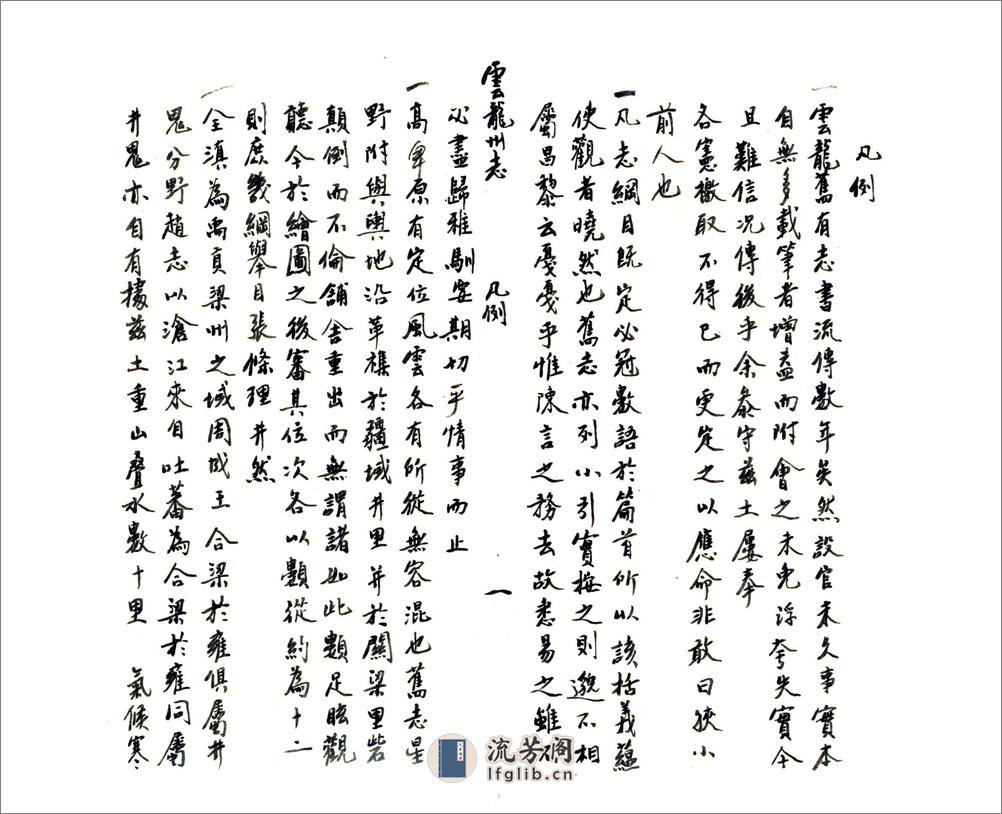 凡例
一雲龍舊有志書流傳數年矣然設官未久事實本
自無多載筆者增益而附會之未免浮夸失實今
且難信况傳後乎余忝守茲土屢奉
各憲檄取不得已而更定之以應命非敢曰狹小
前人也
一凡志綱目既定必冠數語於篇首所以該括義蘊
使觀者曉然也舊志亦列小引實按之則邈不相
屬昌黎云戞戞乎惟陳言之務去故悉易之雖不
雲龍州志 凡例 一
必盡歸雅馴要期切乎情事而止
一高卑原有定位風雲各有所從無容混也舊志星
野附與輿地沿革襍於疆域井里并於關梁里砦
顛倒而不倫舖舍重出而無謂諸如此類足眩觀
聽今於繪圖之後審其位次各以類從約為十二
則庶幾綱舉目張條理井然
一全滇為禹貢梁州之域周成王合梁於雍俱屬井
鬼分野趙志以滄江來自吐蕃為合梁於雍同屬
井鬼亦自有據茲土重山疊水數十里 氣候寒
流芳阁
lfglib.cn